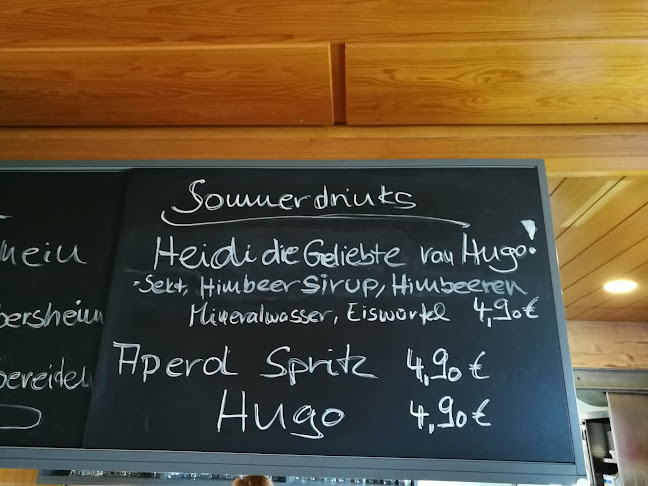 Sommerdrinks
Heidi die Geliebte van Hugo!
-Sekt, Himbeer Sirup, Himbeeren
Mineralwasser, Eiswürfel 4,90€
Aperol Spritz 4,90€
Hugo 4,90€